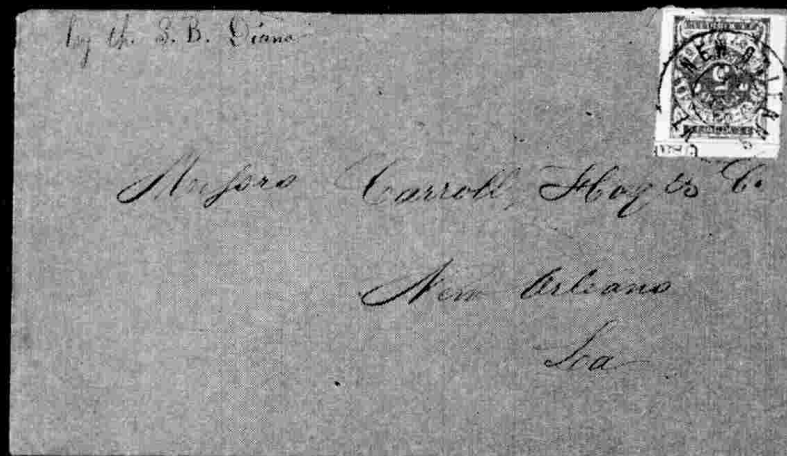 by th. S. B. Diana
NEW ORLEANS
5
Messrs Carroll, Hoy & Co.
New Orleans
Loa